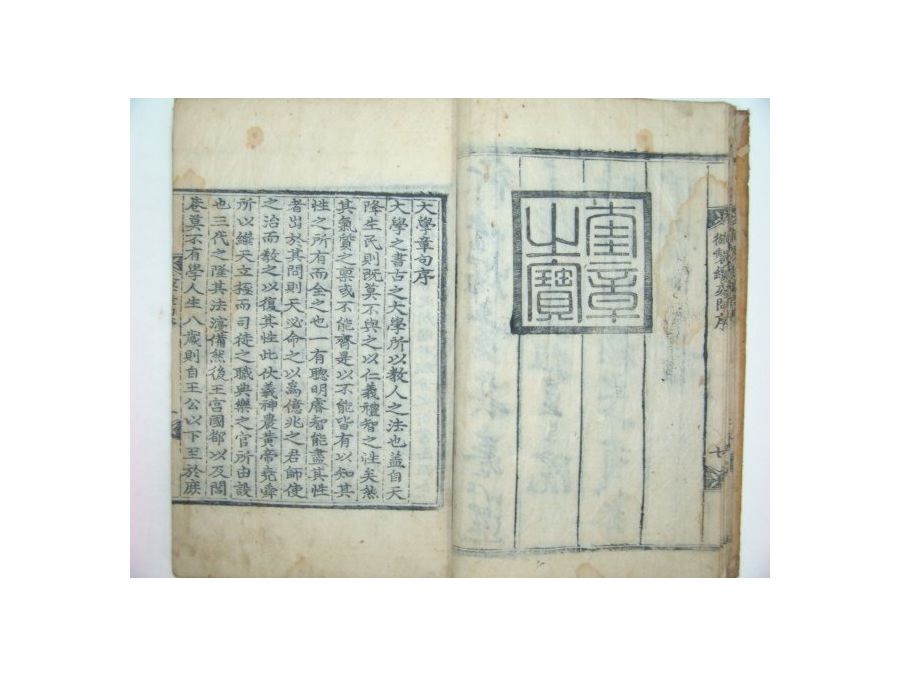 御製序
七
奎章
之寶
大學章句序
大學之書古之大學所以教人之法也蓋自天
降生民則既莫不與之以仁義禮智之性矣然
其氣質之稟或不能齊是以不能皆有以知其
性之所有而全之也一有聰明睿智能盡其性
者出於其間則天必命之以爲億兆之君師使
之治而教之以復其性此伏羲神農黃帝堯舜
所以繼天立極而司徒之職典樂之官所由設
也三代之隆其法寖備然後王宮國都以及閭
巷莫不有學人生八歲則自王公以下至於庶